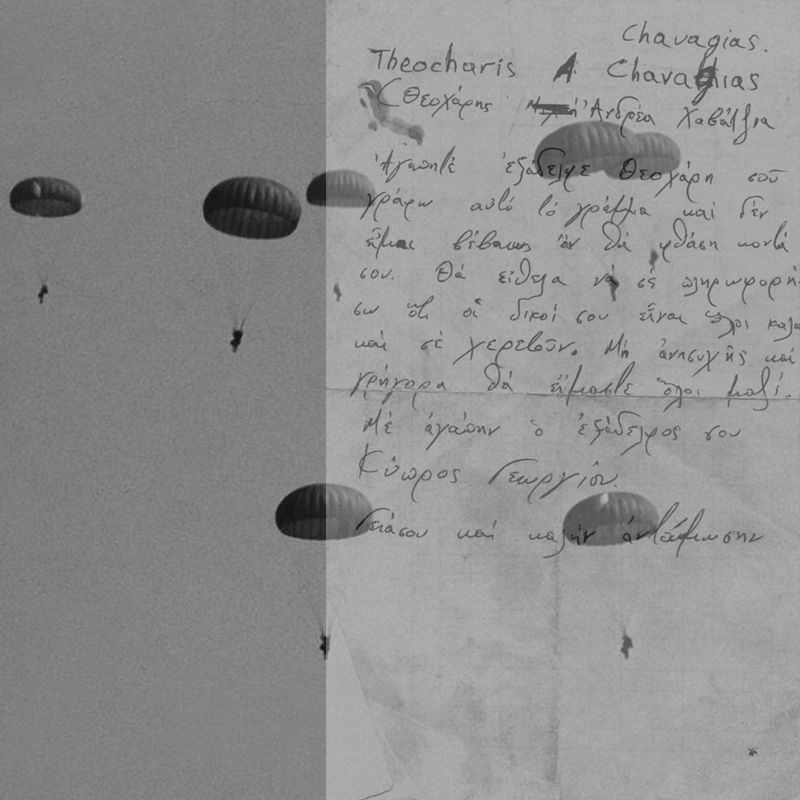 Chavagias.
Theocharis A. Chavaghias
(Θεοχάρης Ἀνδρέα Χαβάτζια
Ἀγαπητέ ἐξάδελφε Θεοχάρη σοῦ
γράφω αυτό τό γράμμα και δέν
εἶμαι βέβαιως ἄν θά φθάση κοντά
σου. Θά εἴθελα νά σέ πληρωφορή-
σω ὅτι οἱ δικοί σου εἶναι ὅλοι καλα
και σέ χερετοῦν. Μή ἀνησυχῆς και
γρήγορα θά εἴμαστε ὅλοι μαζί.
Μέ ἀγάπην ὁ ἐξάδελφος σου
Κύπρος Γεωργίου.
Γειάσου και καλήν ἀντάμωσην